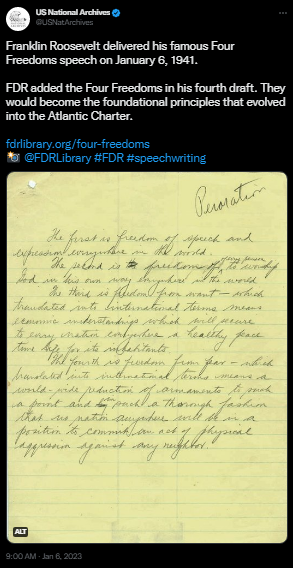 US National Archives
@USNatArchives
Franklin Roosevelt delivered his famous Four
Freedoms speech on January 6, 1941.
FDR added the Four Freedoms in his fourth draft. They
would become the foundational principles that evolved
into the Atlantic Charter.
fdrlibrary.org/four-freedoms
@FDRLibrary #FDR #speechwriting
Peroration
The first is freedom of speech and
expression everywhere in the world.
The second is freedom of every person to worship
God in his own way everywhere in the world
The third is freedom from want – which
translated into international terms means
economic understandings which will secure
to every nation everywhere a healthy peace
time life for its inhabitants.
The fourth is freedom from fear – which
translated into international terms means a
world-wide reduction of armaments to such
a point and in such a thorough fashion
that no nation anywhere will be in a
position to commit an act of physical
aggression against any neighbor.
ALT
9:00 AM · Jan 6, 2023